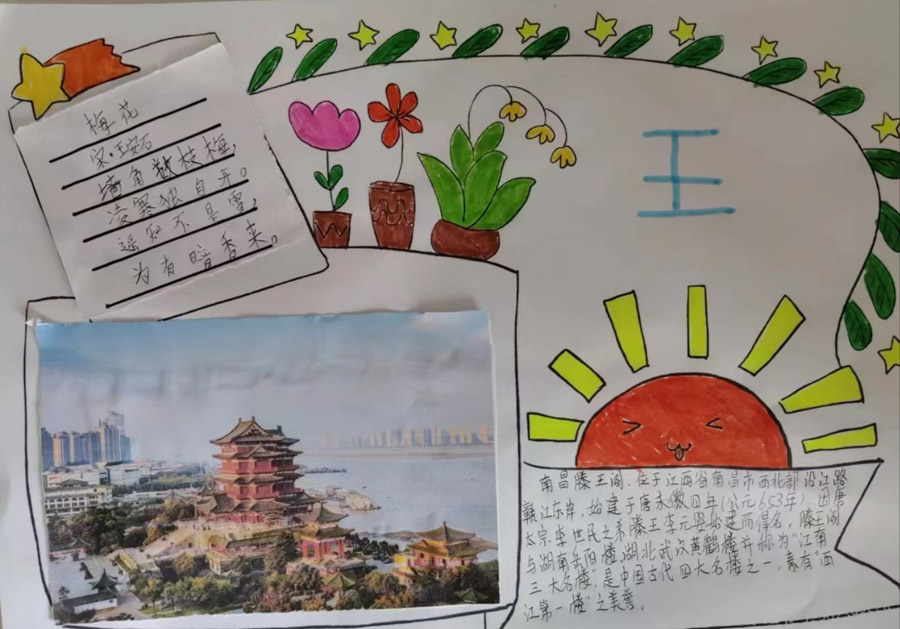 梅花
宋·王安石
墙角数枝梅,
凌寒独自开。
遥知不是雪,
为有暗香来。
王
南昌滕王阁,位于江西省南昌市西北部沿江路
赣江东岸,始建于唐永徽四年(公元653年),因唐
太宗李世民之弟滕王李元婴始建而得名。滕王阁
与湖南岳阳楼,湖北武汉黄鹤楼并称为“江南
三大名楼”,是中国古代四大名楼之一,素有“西
江第一楼”之美誉。